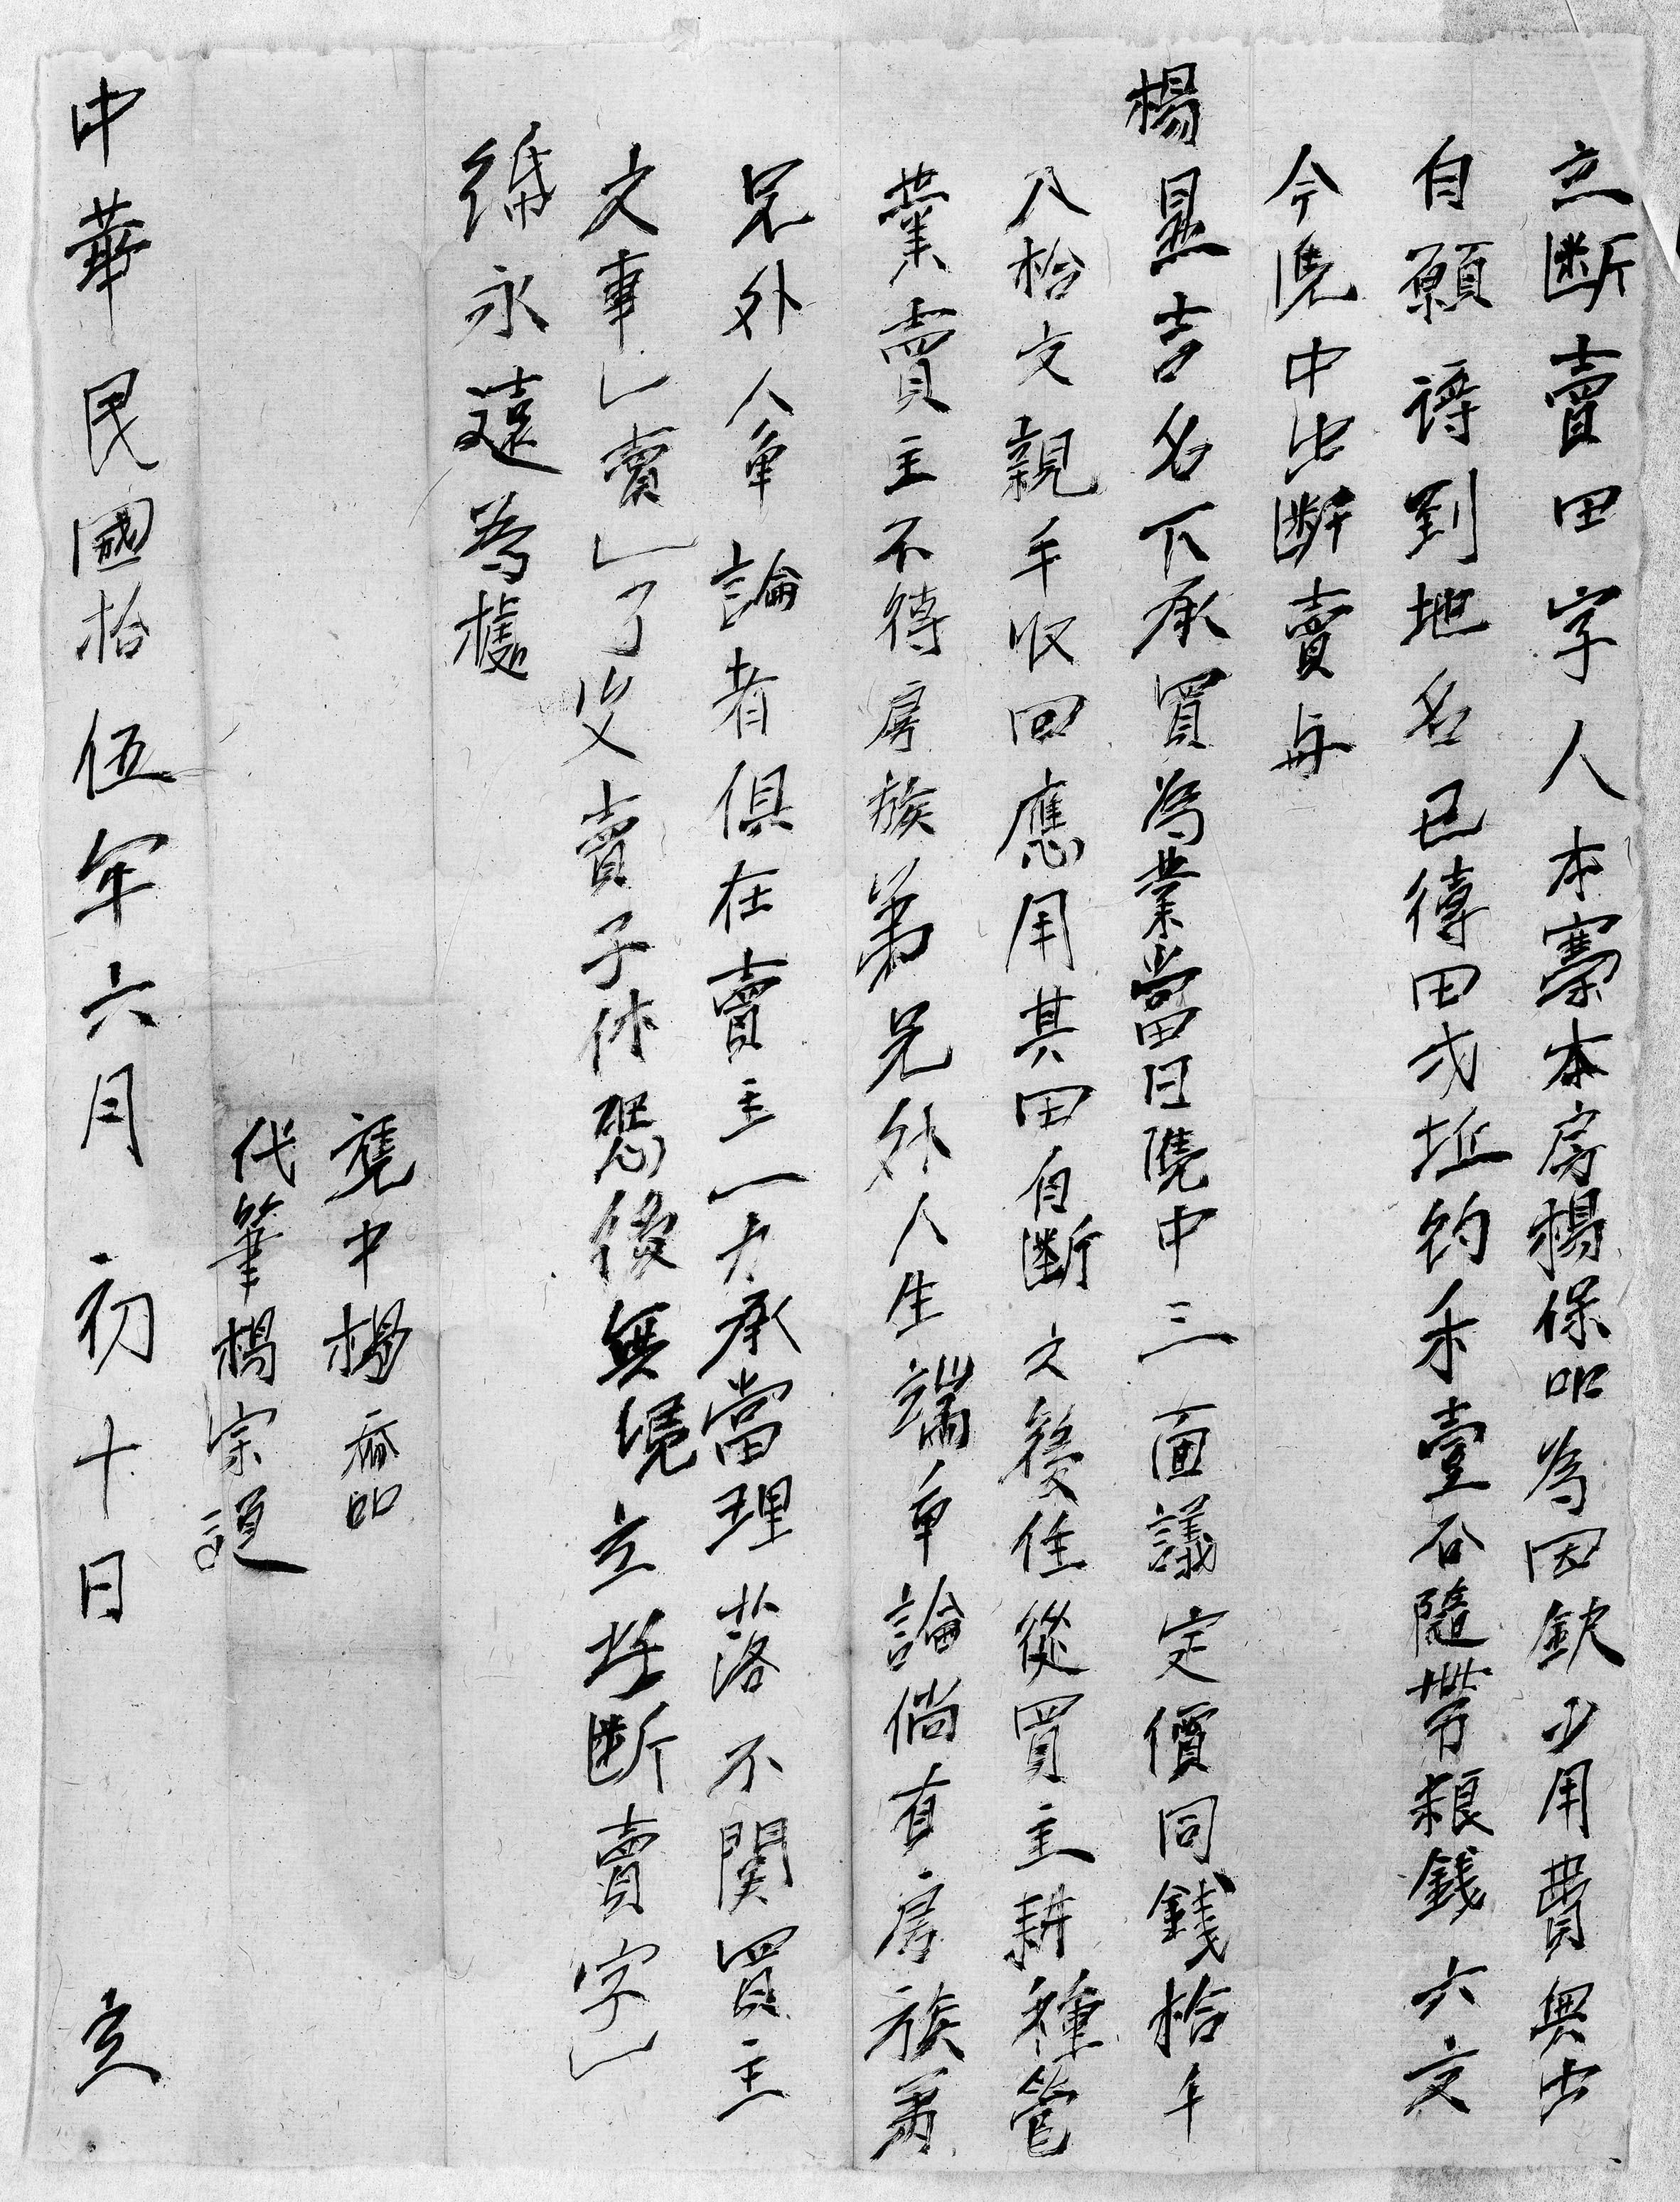 立断賣田字人本寨本房楊保品為因缺少用費無出
自願請到地名已得田弍坵約禾壹石隨帶粮錢六文
今凴中出断賣与
楊显吉名下承買為業當日凴中三面議定價同錢拾千
八拾文親手收回應用其田自断之後任從買主耕種管
業賣主不得房族弟兄外人生端争論倘有房族弟
兄外人争論者俱在賣主一力承當理落不関買主
之事乚賣乚了父賣子休恐後無凴立此断賣字乚
紙永遠為據
凴中楊喬品
代筆楊宗道
中華民國拾伍年六月初十日 立